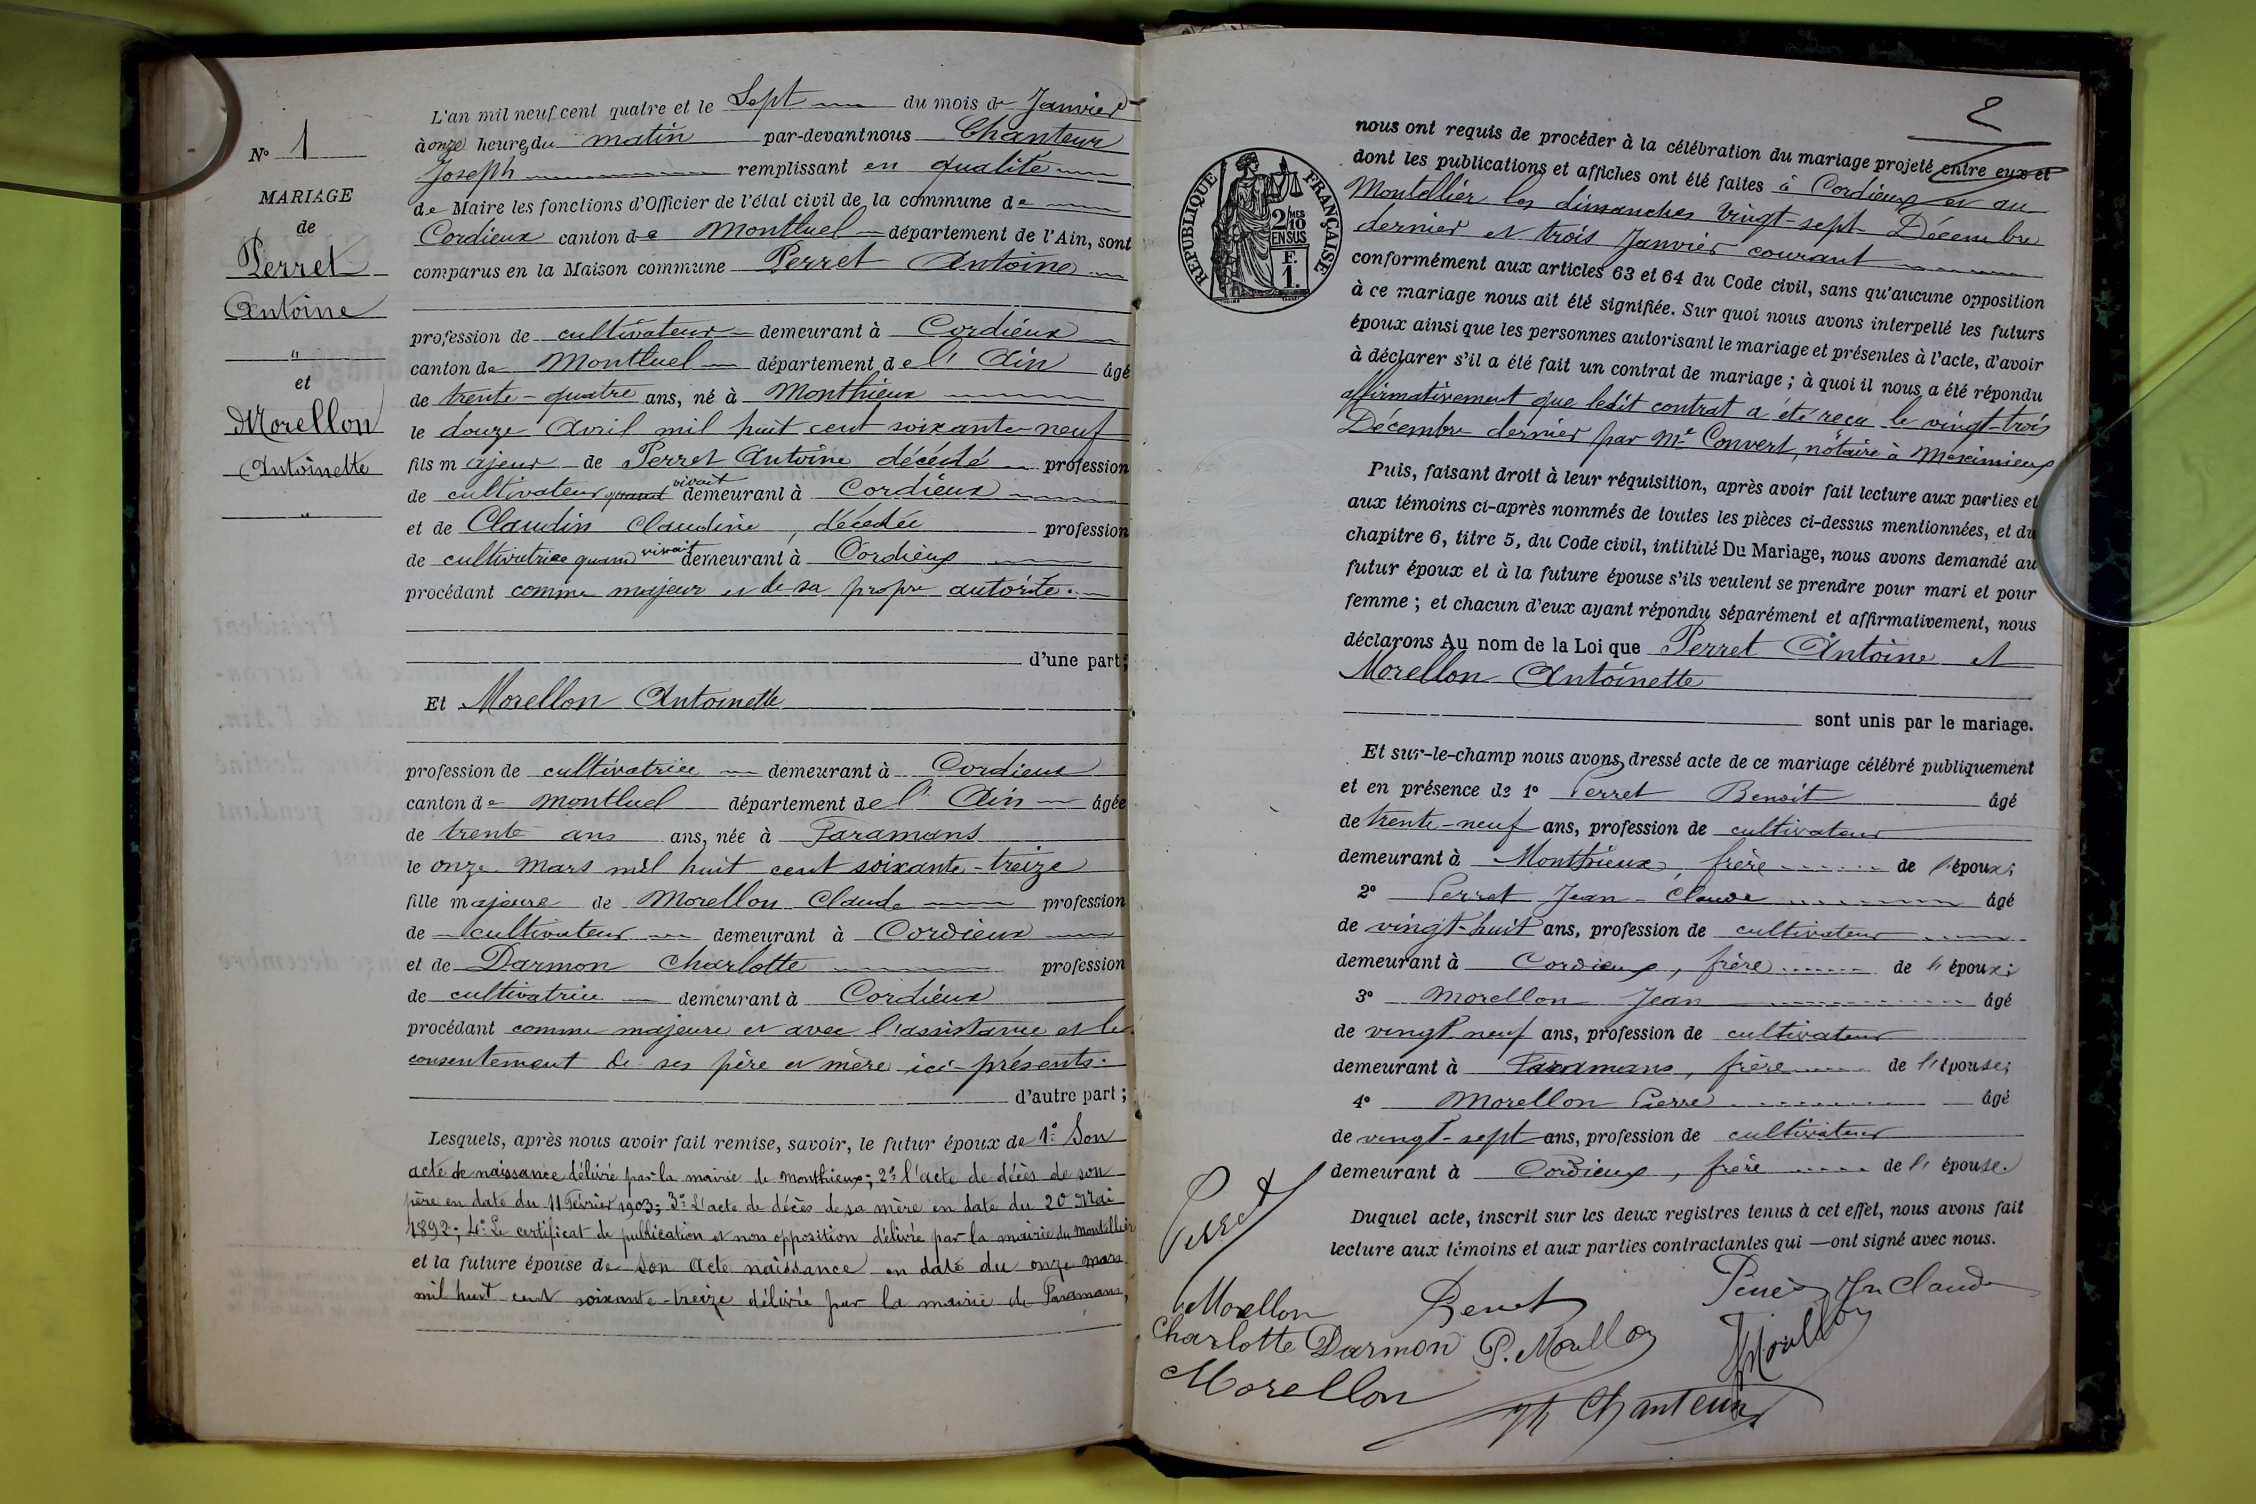 N° 1
MARIAGE
de
Perret
Antoine
"
et
Morellon
Antoinette
"
L'an mil neuf cent quatre et le Sept du mois de Janvier
à onze heures du matin par-devant nous Chanteur
Joseph remplissant en qualité
de Maire les fonctions d'Officier de l'état civil de la commune de
Cordieux canton de Montluel département de l'Ain, sont
comparus en la Maison commune Perret Antoine
profession de cultivateur demeurant à Cordieux
canton de Montluel département de l'Ain âgé
de trente-quatre ans, né à Monthieux
le douze Avril mil huit cent soixante-neuf
fils majeur de Perret Antoine décédé profession
de cultivateur quand vivait demeurant à Cordieux
et de Claudin Claudine, décédée profession
de cultivatrice quand vivait demeurant à Cordieux
procédant comme majeur et de sa propre autorité.
d'une part;
Et Morellon Antoinette
profession de cultivatrice demeurant à Cordieux
canton de Montluel département de l'Ain âgée
de trente ans ans, née à Faramans
le onze Mars mil huit cent soixante-treize
fille majeure de Morellon Claude profession
de cultivateur demeurant à Cordieux
et de Darmon Charlotte profession
de cultivatrice demeurant à Cordieux
procédant comme majeure et avec l'assistance et le
consentement de ses père et mère ici-présents.
d'autre part;
Lesquels, après nous avoir fait remise, savoir, le futur époux de 1° Son
acte de naissance délivré par la mairie de Monthieux; 2° l'acte de décès de son
père en date du 11 Février 1903; 3° L'acte de décès de sa mère en date du 20 Mai
1892; 4° Le certificat de publication et non opposition délivré par la mairie du Montellier
et la future épouse de son acte naissance en date du onze mars
mil huit cent soixante-treize délivrée par la mairie de Faramans,
2
RÉPUBLIQUE FRANÇAISE
2 MES
10
EN SUS
F.
1.
nous ont requis de procéder à la célébration du mariage projeté entre eux et
dont les publications et affiches ont été faites à Cordieux et au
Montellier les dimanches vingt-sept Décembre
dernier et trois Janvier courant
conformément aux articles 63 et 64 du Code civil, sans qu'aucune opposition
à ce mariage nous ait été signifiée. Sur quoi nous avons interpellé les futurs
époux ainsi que les personnes autorisant le mariage et présentes à l'acte, d'avoir
à déclarer s'il a été fait un contrat de mariage; à quoi il nous a été répondu
affirmativement que ledit contrat a été reçu le vingt-trois
Décembre dernier par Me Convert, notaire à Meximieux
Puis, faisant droit à leur réquisition, après avoir fait lecture aux parties et
aux témoins ci-après nommés de toutes les pièces ci-dessus mentionnées, et du
chapitre 6, titre 5, du Code civil, intitulé Du Mariage, nous avons demandé au
futur époux et à la future épouse s'ils veulent se prendre pour mari et pour
femme; et chacun d'eux ayant répondu séparément et affirmativement, nous
déclarons Au nom de la Loi que Perret Antoine et
Morellon Antoinette
sont unis par le mariage.
Et sur-le-champ nous avons dressé acte de ce mariage célébré publiquement
et en présence de 1° Perret Benoit âgé
de trente-neuf ans, profession de cultivateur
demeurant à Monthieux, frère de l'époux;
2° Perret Jean-Claude âgé
de vingt-huit ans, profession de cultivateur
demeurant à Cordieux, frère de l'époux;
3° Morellon Jean âgé
de vingt neuf ans, profession de cultivateur
demeurant à Faramans, frère de l'épouse;
4° Morellon Pierre âgé
de vingt-sept ans, profession de cultivateur
demeurant à Cordieux, frère de l'épouse.
Duquel acte, inscrit sur les deux registres tenus à cet effet, nous avons fait
lecture aux témoins et aux parties contractantes qui ont signé avec nous.
Perret
Morellon
Charlotte Darmon P. Morellon
Morellon
Chanteur